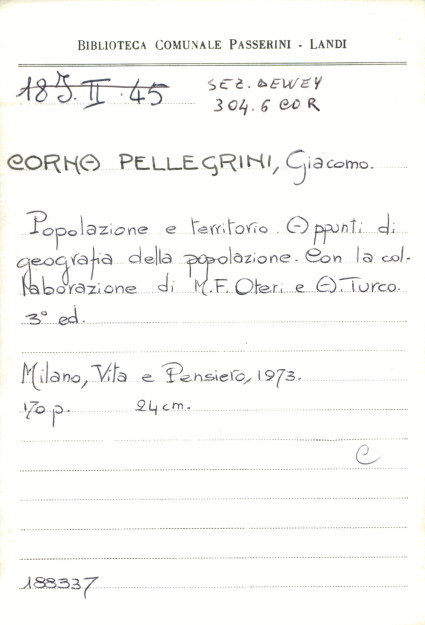 BIBLIOTECA COMUNALE PASSERINI - LANDI
18J.II.45
SEZ. DEWEY
304.6 COR
CORNA PELLEGRINI, Giacomo.
Popolazione e territorio. Appunti di
geografia della popolazione. Con la col-
laborazione di M.F. Oteri e A. Turco.
3° ed.
Milano, Vita e Pensiero, 1973.
170 p. 24 cm.
C
188337